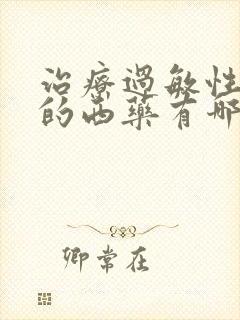 治療過敏性
的西藥有哪
卿常在